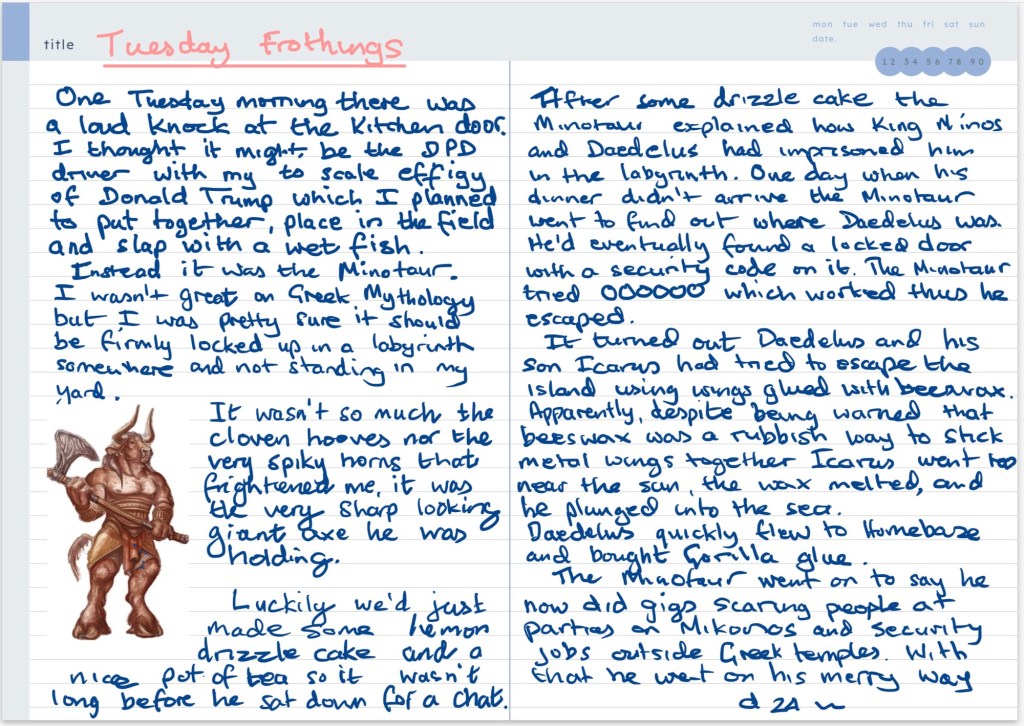 title Tuesday Frothings
mon tue wed thu fri sat sun
date.
1 2 3 4 5 6 7 8 9 0
One Tuesday morning there was
a loud knock at the kitchen door.
I thought it might be the DPD
driver with my to scale effigy
of Donald Trump which I planned
to put together, place in the field
and slap with a wet fish.
Instead it was the Minotaur.
I wasn't great on Greek Mythology
but I was pretty sure it should
be firmly locked up in a labyrinth
somewhere and not standing in my
yard.
It wasn't so much the
cloven hooves nor the
very spiky horns that
frightened me, it was
the very sharp looking
giant axe he was
holding.
Luckily we'd just
made some lemon
drizzle cake and a
nice pot of tea so it wasn't
long before he sat down for a chat.
After some drizzle cake the
Minotaur explained how King Minos
and Daedelus had imprisoned him
in the labyrinth. One day when his
dinner didn't arrive the Minotaur
went to find out where Daedelus was.
He'd eventually found a locked door
with a security code on it. The Minotaur
tried 000000 which worked thus he
escaped.
It turned out Daedelus and his
son Icarus had tried to escape the
island using wings glued with beeswax.
Apparently, despite being warned that
beeswax was a rubbish way to stick
metal wings together Icarus went too
near the sun, the wax melted, and
he plunged into the sea.
Daedelus quickly flew to Homebase
and bought Gorilla glue.
The Minotaur went on to say he
now did gigs scaring people at
parties on Mikonos and security
jobs outside Greek temples. With
that he went on his merry way